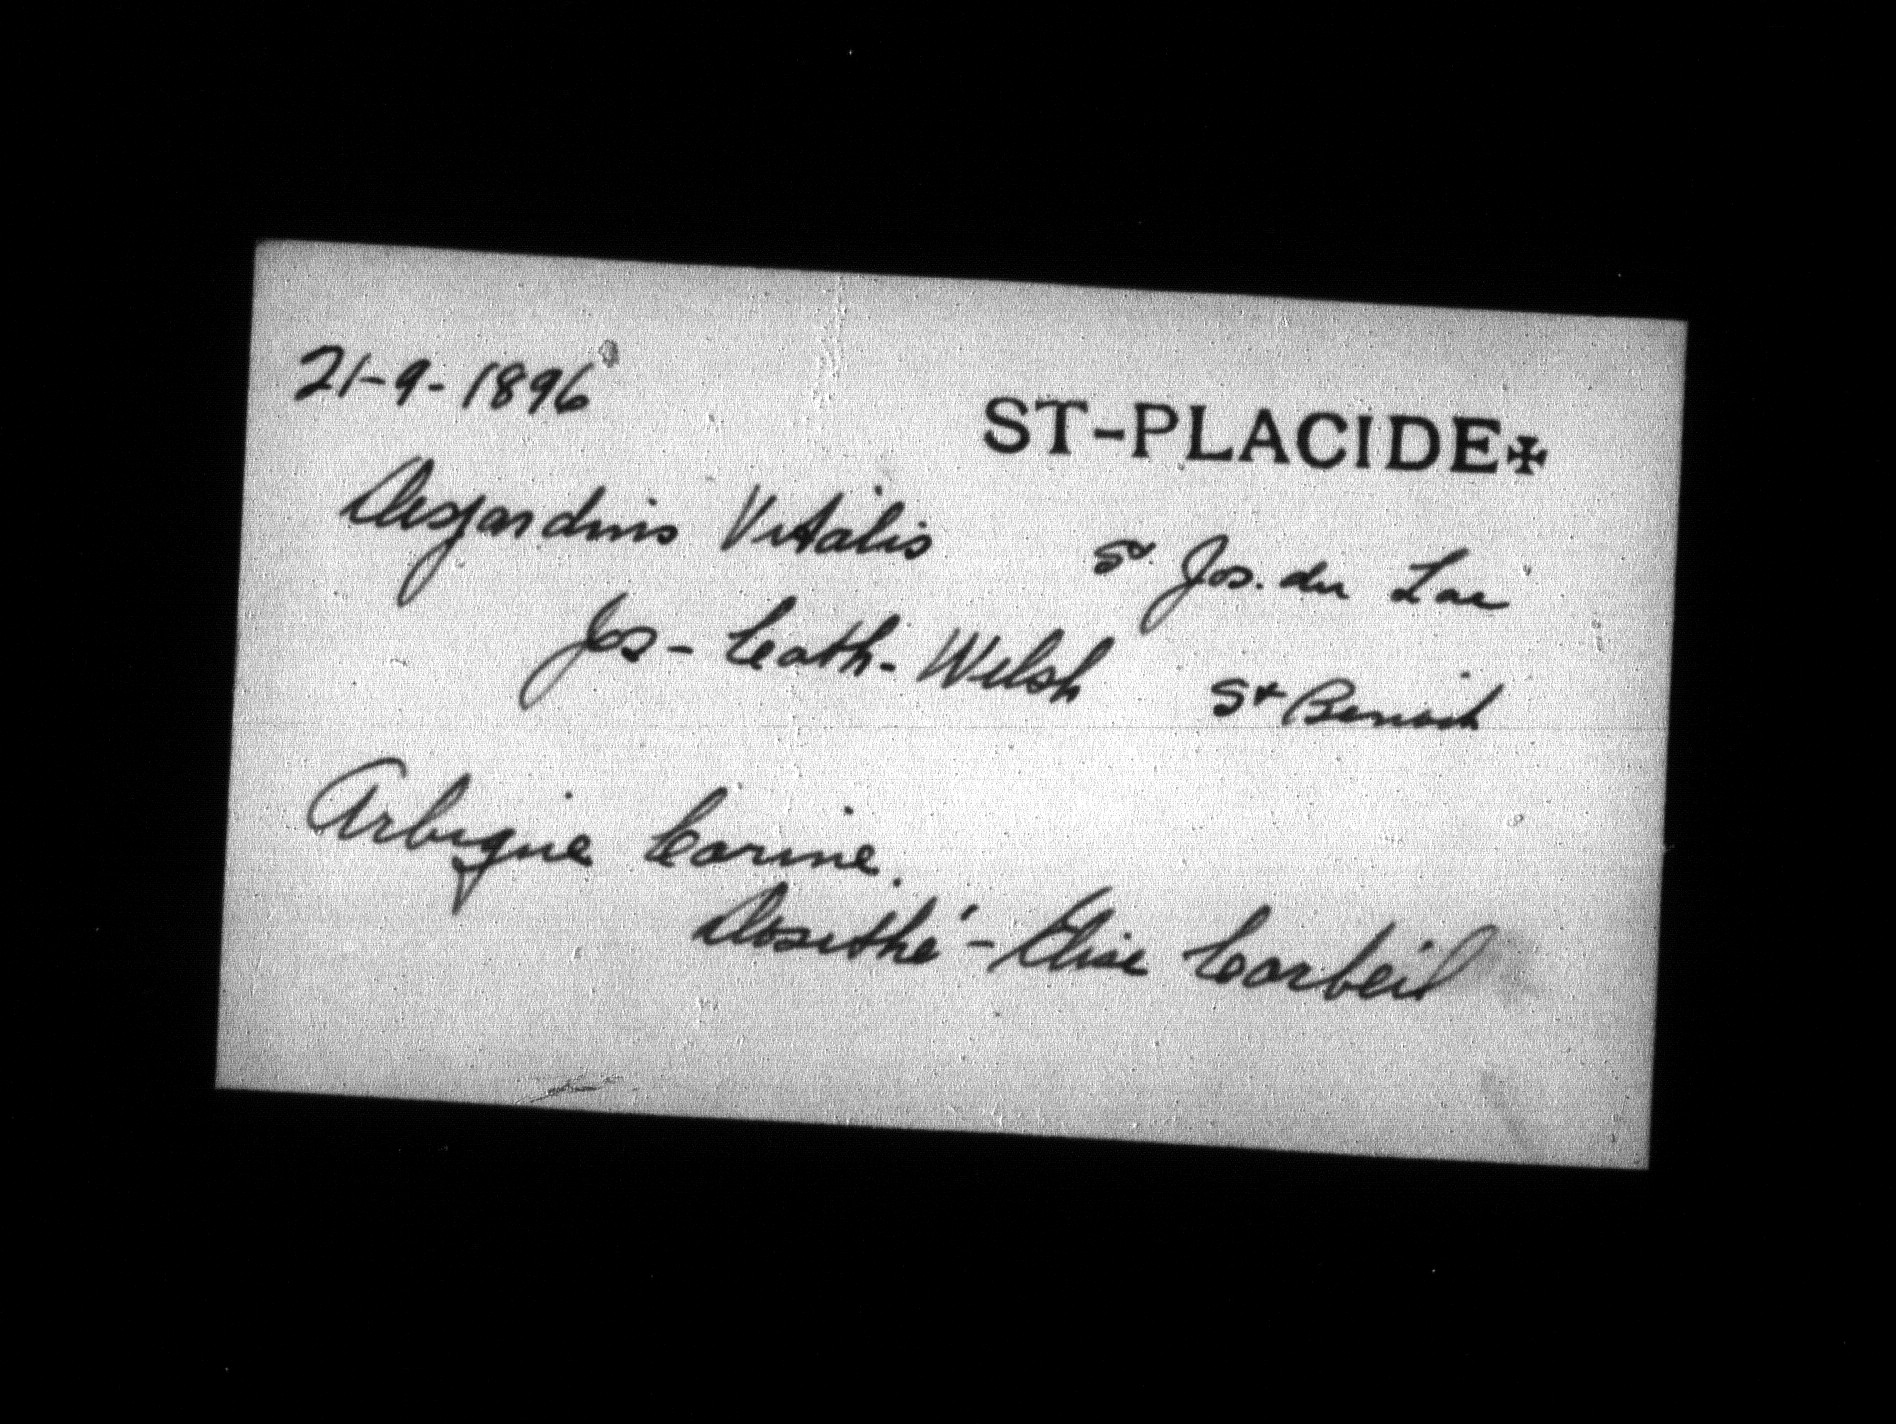 21-9-1896
ST-PLACIDE✠
Desjardins Vitalis St. Jos. du Lac
Jos - Cath. Welsh St Benoit
Arbique Corine.
Dosithé - Elise Corbeil